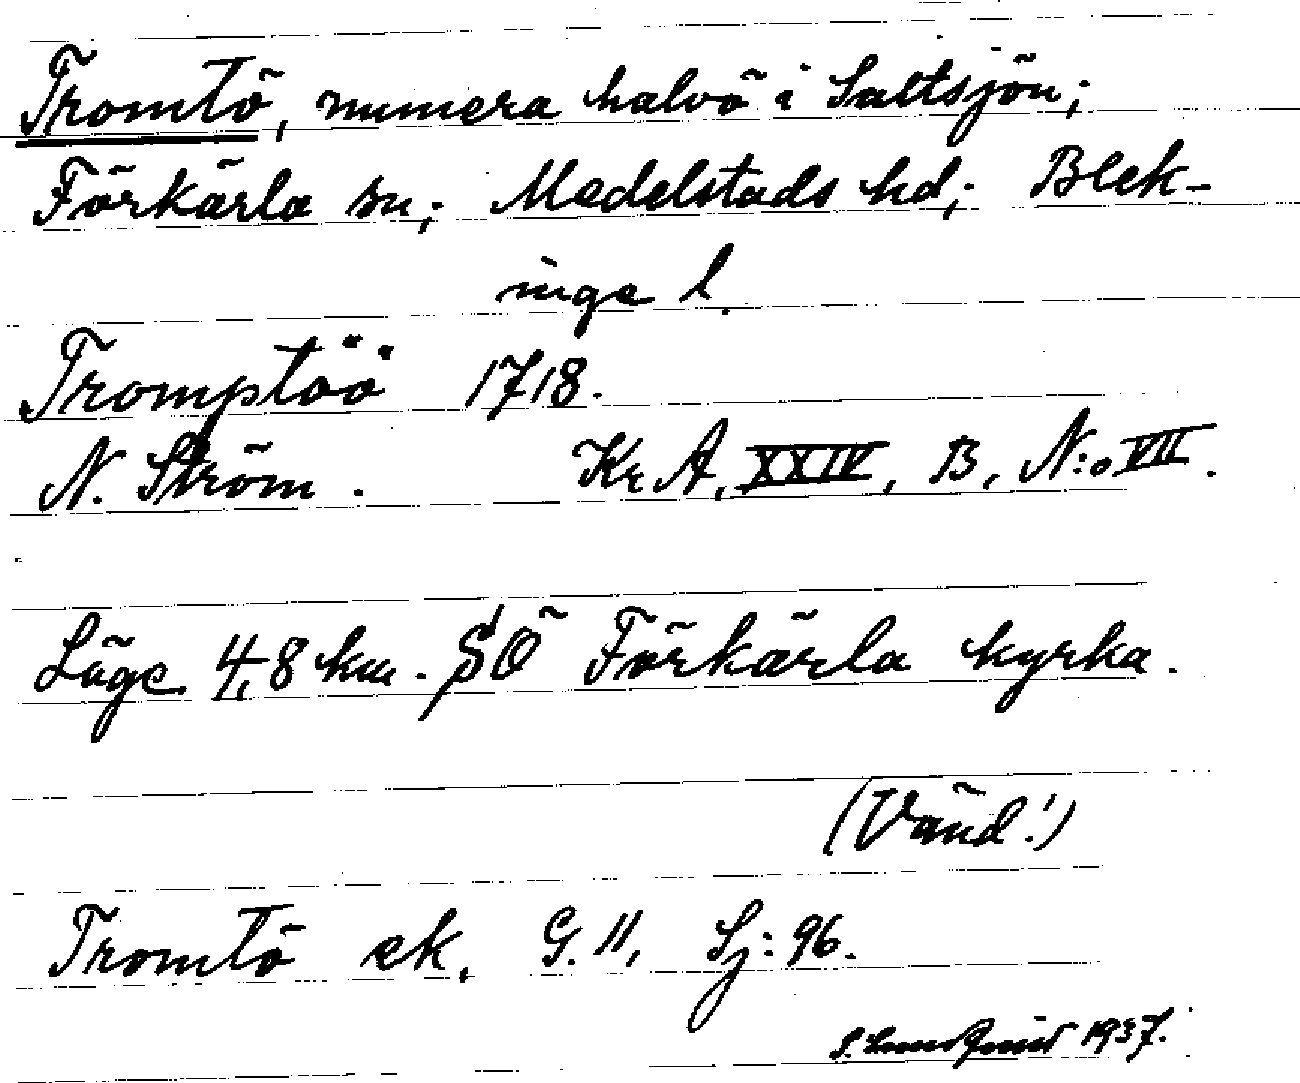 Tromtö, numera halvö i Saltsjön;
Förkärla sn; Medelstads hd; Blek-
inge l.
Tromptöö 1718.
N. Ström. Kr A, XXIV, B, N:o VII.
Läge 4,8 km. SÖ Förkärla kyrka.
(Vänd!)
Tromtö ek. G. 11, Sj: 96.
S. Lundquist 1937.